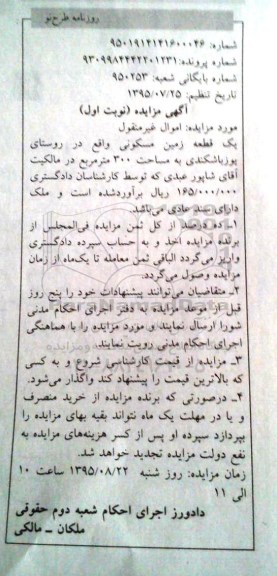 روزنامه طرح‌نو
شماره: ۹۵۰۱۹۱۴۱۴۱۶۰۰۰۴۶
شماره پرونده: ۹۳۰۹۹۸۴۴۴۲۲۰۱۲۳۱
شماره بایگانی شعبه: ۹۵۰۲۵۳
تاریخ تنظیم: ۱۳۹۵/۰۷/۲۵
آگهی مزایده (نوبت اول)
مورد مزایده: اموال غیرمنقول
یک قطعه زمین مسکونی واقع در روستای
یوزباشکندی به مساحت ۳۰۰ مترمربع در مالکیت
آقای شاپور عبدی که توسط کارشناسان دادگستری
۱۶۵/۰۰۰/۰۰۰ ریال برآوردشده است و ملک
دارای سند عادی می‌باشد.
۱ـ ده درصد از کل ثمن مزایده فی‌المجلس از
برنده مزایده اخذ و به حساب سپرده دادگستری
واریز می‌گردد الباقی ثمن معامله تا یک‌ماه از زمان
مزایده وصول می‌گردد.
۲ـ متقاضیان می‌توانند پیشنهادات خود را پنج روز
قبل از موعد مزایده به دفتر اجرای احکام مدنی
شورا ارسال نمایند و مورد مزایده را با هماهنگی
اجرای احکام مدنی رویت نمایند.
۳ـ مزایده از قیمت کارشناسی شروع و به کسی
که بالاترین قیمت را پیشنهاد کند واگذار می‌شود.
۴ـ درصورتی که برنده مزایده از خرید منصرف
و یا در مهلت یک ماه نتواند بقیه بهای مزایده را
بپردازد سپرده او پس از کسر هزینه‌های مزایده به
نفع دولت مزایده تجدید خواهد شد.
زمان مزایده: روز شنبه ۱۳۹۵/۰۸/۲۲ ساعت ۱۰
الی ۱۱
دادورز اجرای احکام شعبه دوم حقوقی
ملکان ـ مالکی